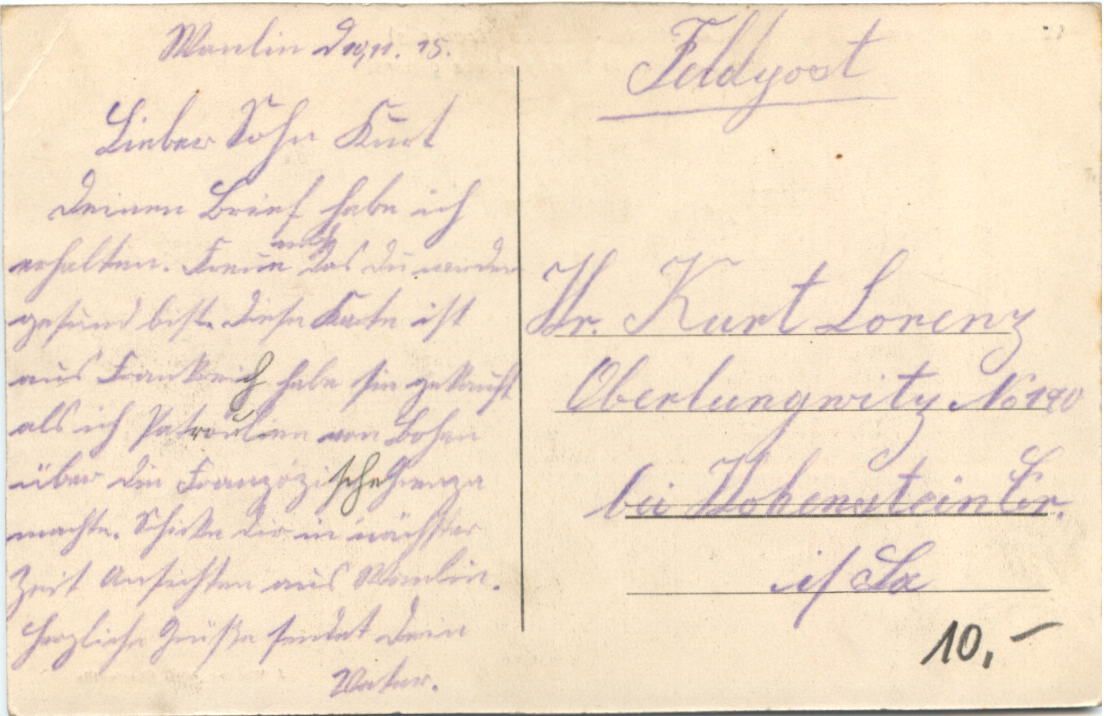 Wanlin d 10,11. 15.
Lieber Sohn Kurt
Deinen Brief habe ich
erhalten. Freue mich das du wieder
gesund bist. Diese Karte ist
aus Frankreich habe sie gekauft
als ich Patroulien von Bohan
über die Französische Grenze
machte. Schicke dir in nächster
Zeit Ansichten aus Wanlin.
Herzliche Grüße sendet Dein
Vater.
Feldpost
Hr. Kurt Lorenz
Oberlungwitz No 190
bei Hohenstein Er.
i/ Sa
10,-